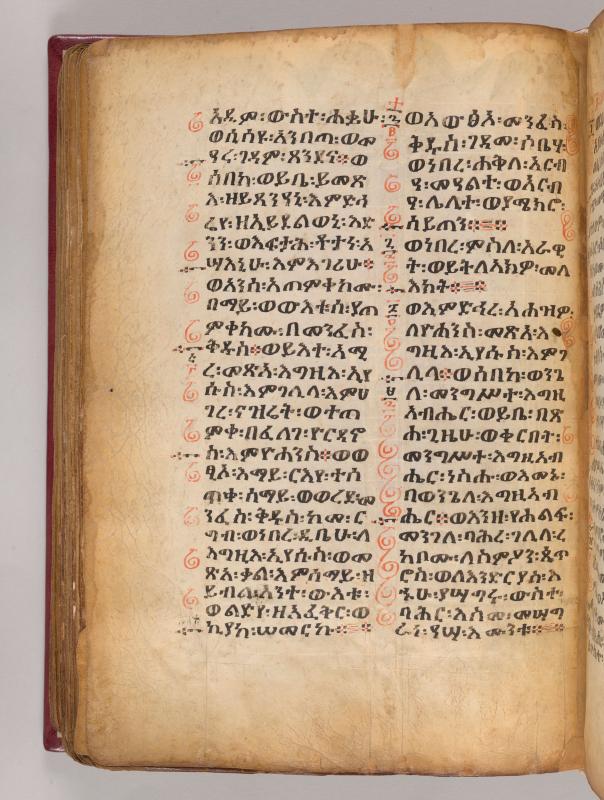 አዲም፡ውስተ፡ሐቌሁ፡
ወሲሳዩ፡አንበጣ፡ወመ
ዓረ፡ገዳም፡ ወ
ሰበከ፡ወይቤ፡ይመጽ
እ፡ዘይጸንዓኒ፡እምድኅ
ሬየ፡ዘኢይደልወኒ፡እድ
ንን፡ወእፍታሕ፡ቶታነ፡አ
ሣእኒሁ፡እምእገሪሁ።
ወአንሰ፡አጠምቀክሙ፡
በማይ፡ወውእቱሰ፡ያጠ
ምቀክሙ፡በመንፈስ፡
ቅዱስ።ወይእተ፡አሚ
ረ፡መጽአ፡እግዚእ፡ኢየ
ሱስ፡እምገሊላ፡እምሀ
ገረ፡ናዝሬት፡ወተጠ
ምቀ፡በፈለገ፡ዮርዳኖ
ስ፡እምዮሐንስ።ወወ
ፂኦ፡እማይ፡ርእየ፡ተሰ
ጥቀ፡ሰማይ፡ወወረደ፡መ
ንፈስ፡ቅዱስ፡ከመ፡ር
ግብ፡ወነበረ፡ዲቤሁ፡ለ
እግዚእ፡ኢየሱስ፡ወመ
ጽአ፡ቃል፡እምሰማይ፡ዘ
ይብል፡አንተ፡ውእቱ፡
ወልድየ፡ዘአፈቅር፡ወ
ኪያከ፡ሠመርኩ።
ወአውፅኦ፡መንፈስ፡
ቅዱስ፡ገዳመ፡ሶቤሃ፡
ወነበረ፡ሐቅለ፡አርብ
ዓ፡መዓልተ፡ወአርብ
ዓ፡ሌሊተ፡ወያሜክሮ፡
ሰይጣን።
ወነበረ፡ምስለ፡አራዊ
ት፡ወይትለአክዎ፡መላ
እክት።
ወእምድኅረ፡አሐዝዎ፡
ለዮሐንስ፡መጽአ፡እ
ግዚእ፡ኢየሱስ፡እምገ
ሊላ።ወሰበከ፡ወንጌ
ለ፡መንግሥተ፡እግዚ
አብሔር፡ወይቤ፡በጽ
ሐ፡ጊዜሁ፡ወቀርበት፡
መንግሥተ፡እግዚአብ
ሔር፡ነስሑ፡ወእመኑ፡
በወንጌለ፡እግዚአብ
ሔር።ወእንዘ፡የሐልፍ፡
መንገለ፡ባሕረ፡ገሊላ፡ረ
ከቦሙ፡ለስምዖን፡ጴጥ
ሮስ፡ወለእንድርያስ፡እ
ኁሁ፡ያሣግሩ፡ውስተ፡
ባሕር፡እስመ፡መሣግ
ራን፡ዓሣ፡እሙንቱ።